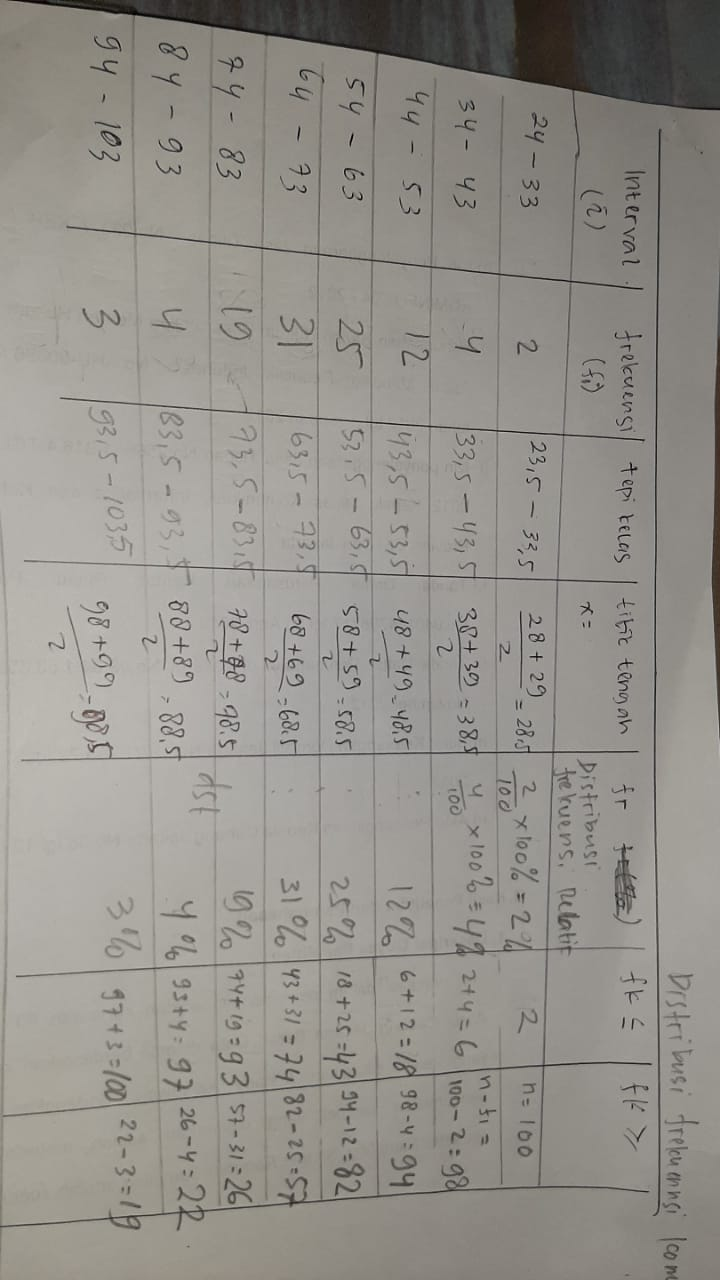 Distribusi frekuensi kom
Interval (i) | frekuensi (fi) | tepi kelas | titik tengah x= | fr Distribusi frekuensi relatif | fk ≤ | fk ≥
24 - 33 | 2 | 23,5 - 33,5 | 28+29/2 = 28,5 | 2/100 x 100% = 2% | 2 | n = 100
34 - 43 | 4 | 33,5 - 43,5 | 38+39/2 = 38,5 | 4/100 x 100% = 4% | 2+4 = 6 | n - f1 = 100 - 2 = 98
44 - 53 | 12 | 43,5 - 53,5 | 48+49/2 = 48,5 | : 12% | 6+12 = 18 | 98 - 4 = 94
54 - 63 | 25 | 53,5 - 63,5 | 58+59/2 = 58,5 | : 25% | 18+25 = 43 | 94 - 12 = 82
64 - 73 | 31 | 63,5 - 73,5 | 68+69/2 = 68,5 | : 31% | 43+31 = 74 | 82 - 25 = 57
74 - 83 | 19 | 73,5 - 83,5 | 78+98/2 = 98,5 | dst 19% | 74+19 = 93 | 57 - 31 = 26
84 - 93 | 4 | 83,5 - 93,5 | 88+89/2 = 88,5 | 4% | 93+4 = 97 | 26 - 4 = 22
94 - 103 | 3 | 93,5 - 103,5 | 98+99/2 = 98,5 | 3% | 97+3 = 100 | 22 - 3 = 19